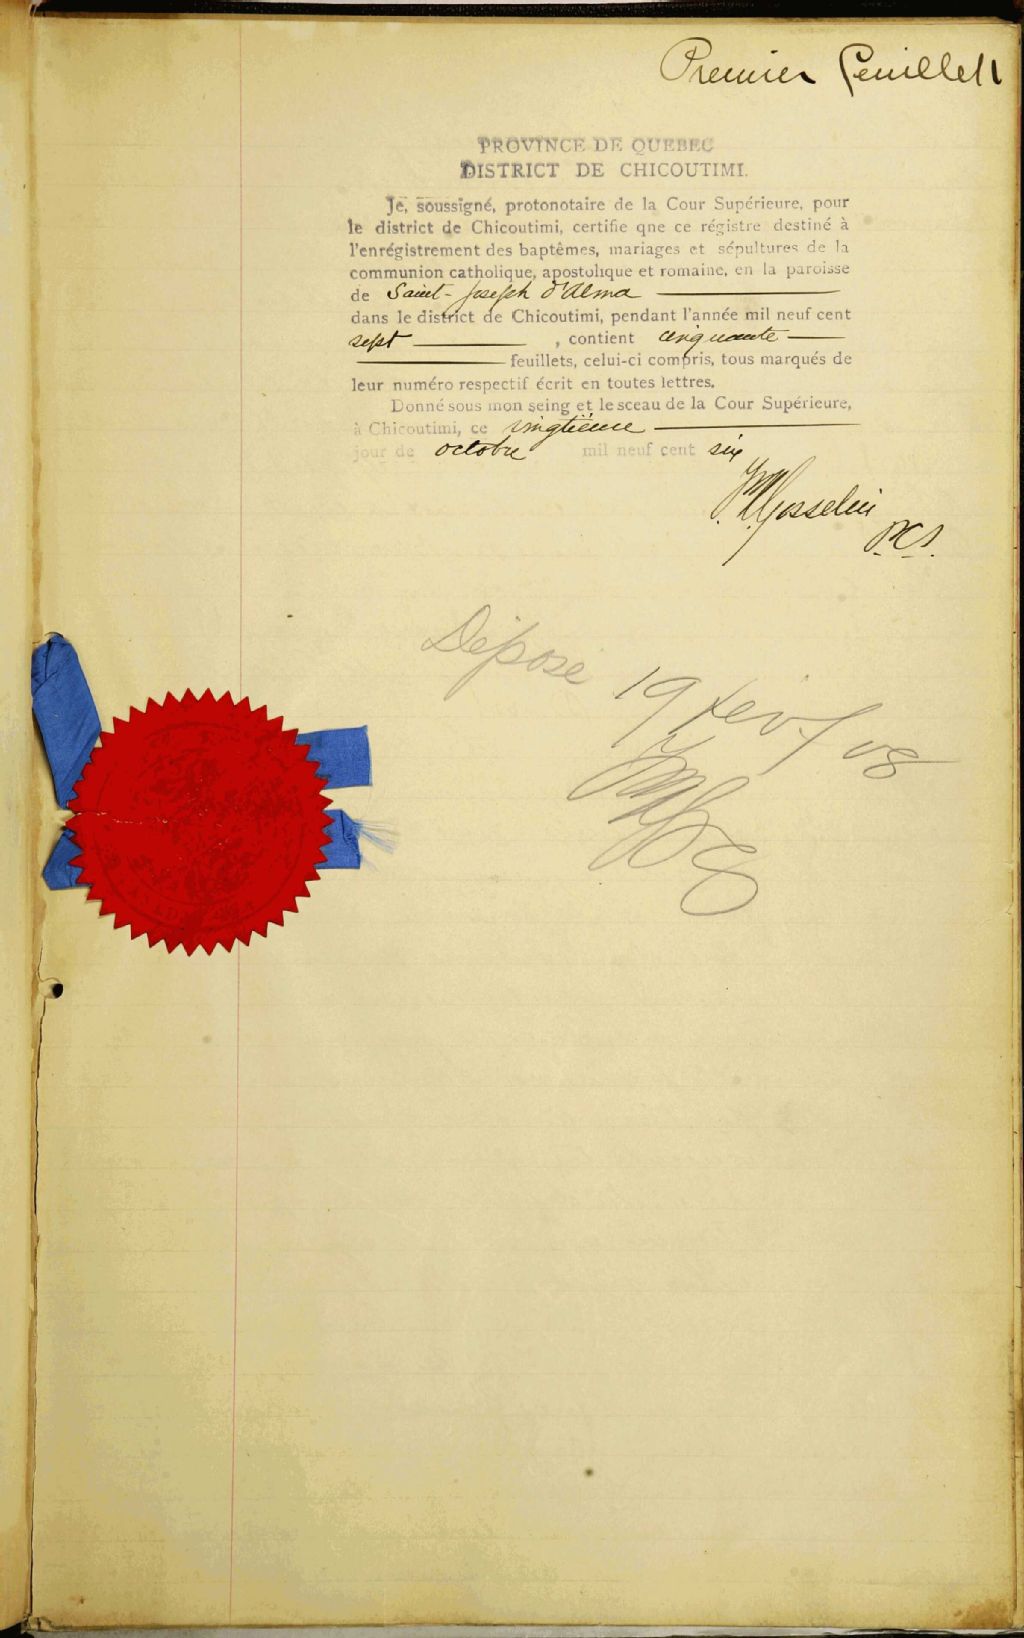 Premier feuillet
PROVINCE DE QUEBEC
DISTRICT DE CHICOUTIMI.
Je, soussigné, protonotaire de la Cour Supérieure, pour
le district de Chicoutimi, certifie qne ce régistre destiné à
l'enrégistrement des baptêmes, mariages et sépultures de la
communion catholique, apostolique et romaine, en la paroisse
de Saint-Joseph d'Alma
dans le district de Chicoutimi, pendant l'année mil neuf cent
sept , contient cinquante
feuillets, celui-ci compris, tous marqués de
leur numéro respectif écrit en toutes lettres.
Donné sous mon seing et le sceau de la Cour Supérieure,
à Chicoutimi, ce vingtième
jour de octobre mil neuf cent six
Gosselin
P.C.S.
Déposé 19 fevr 08